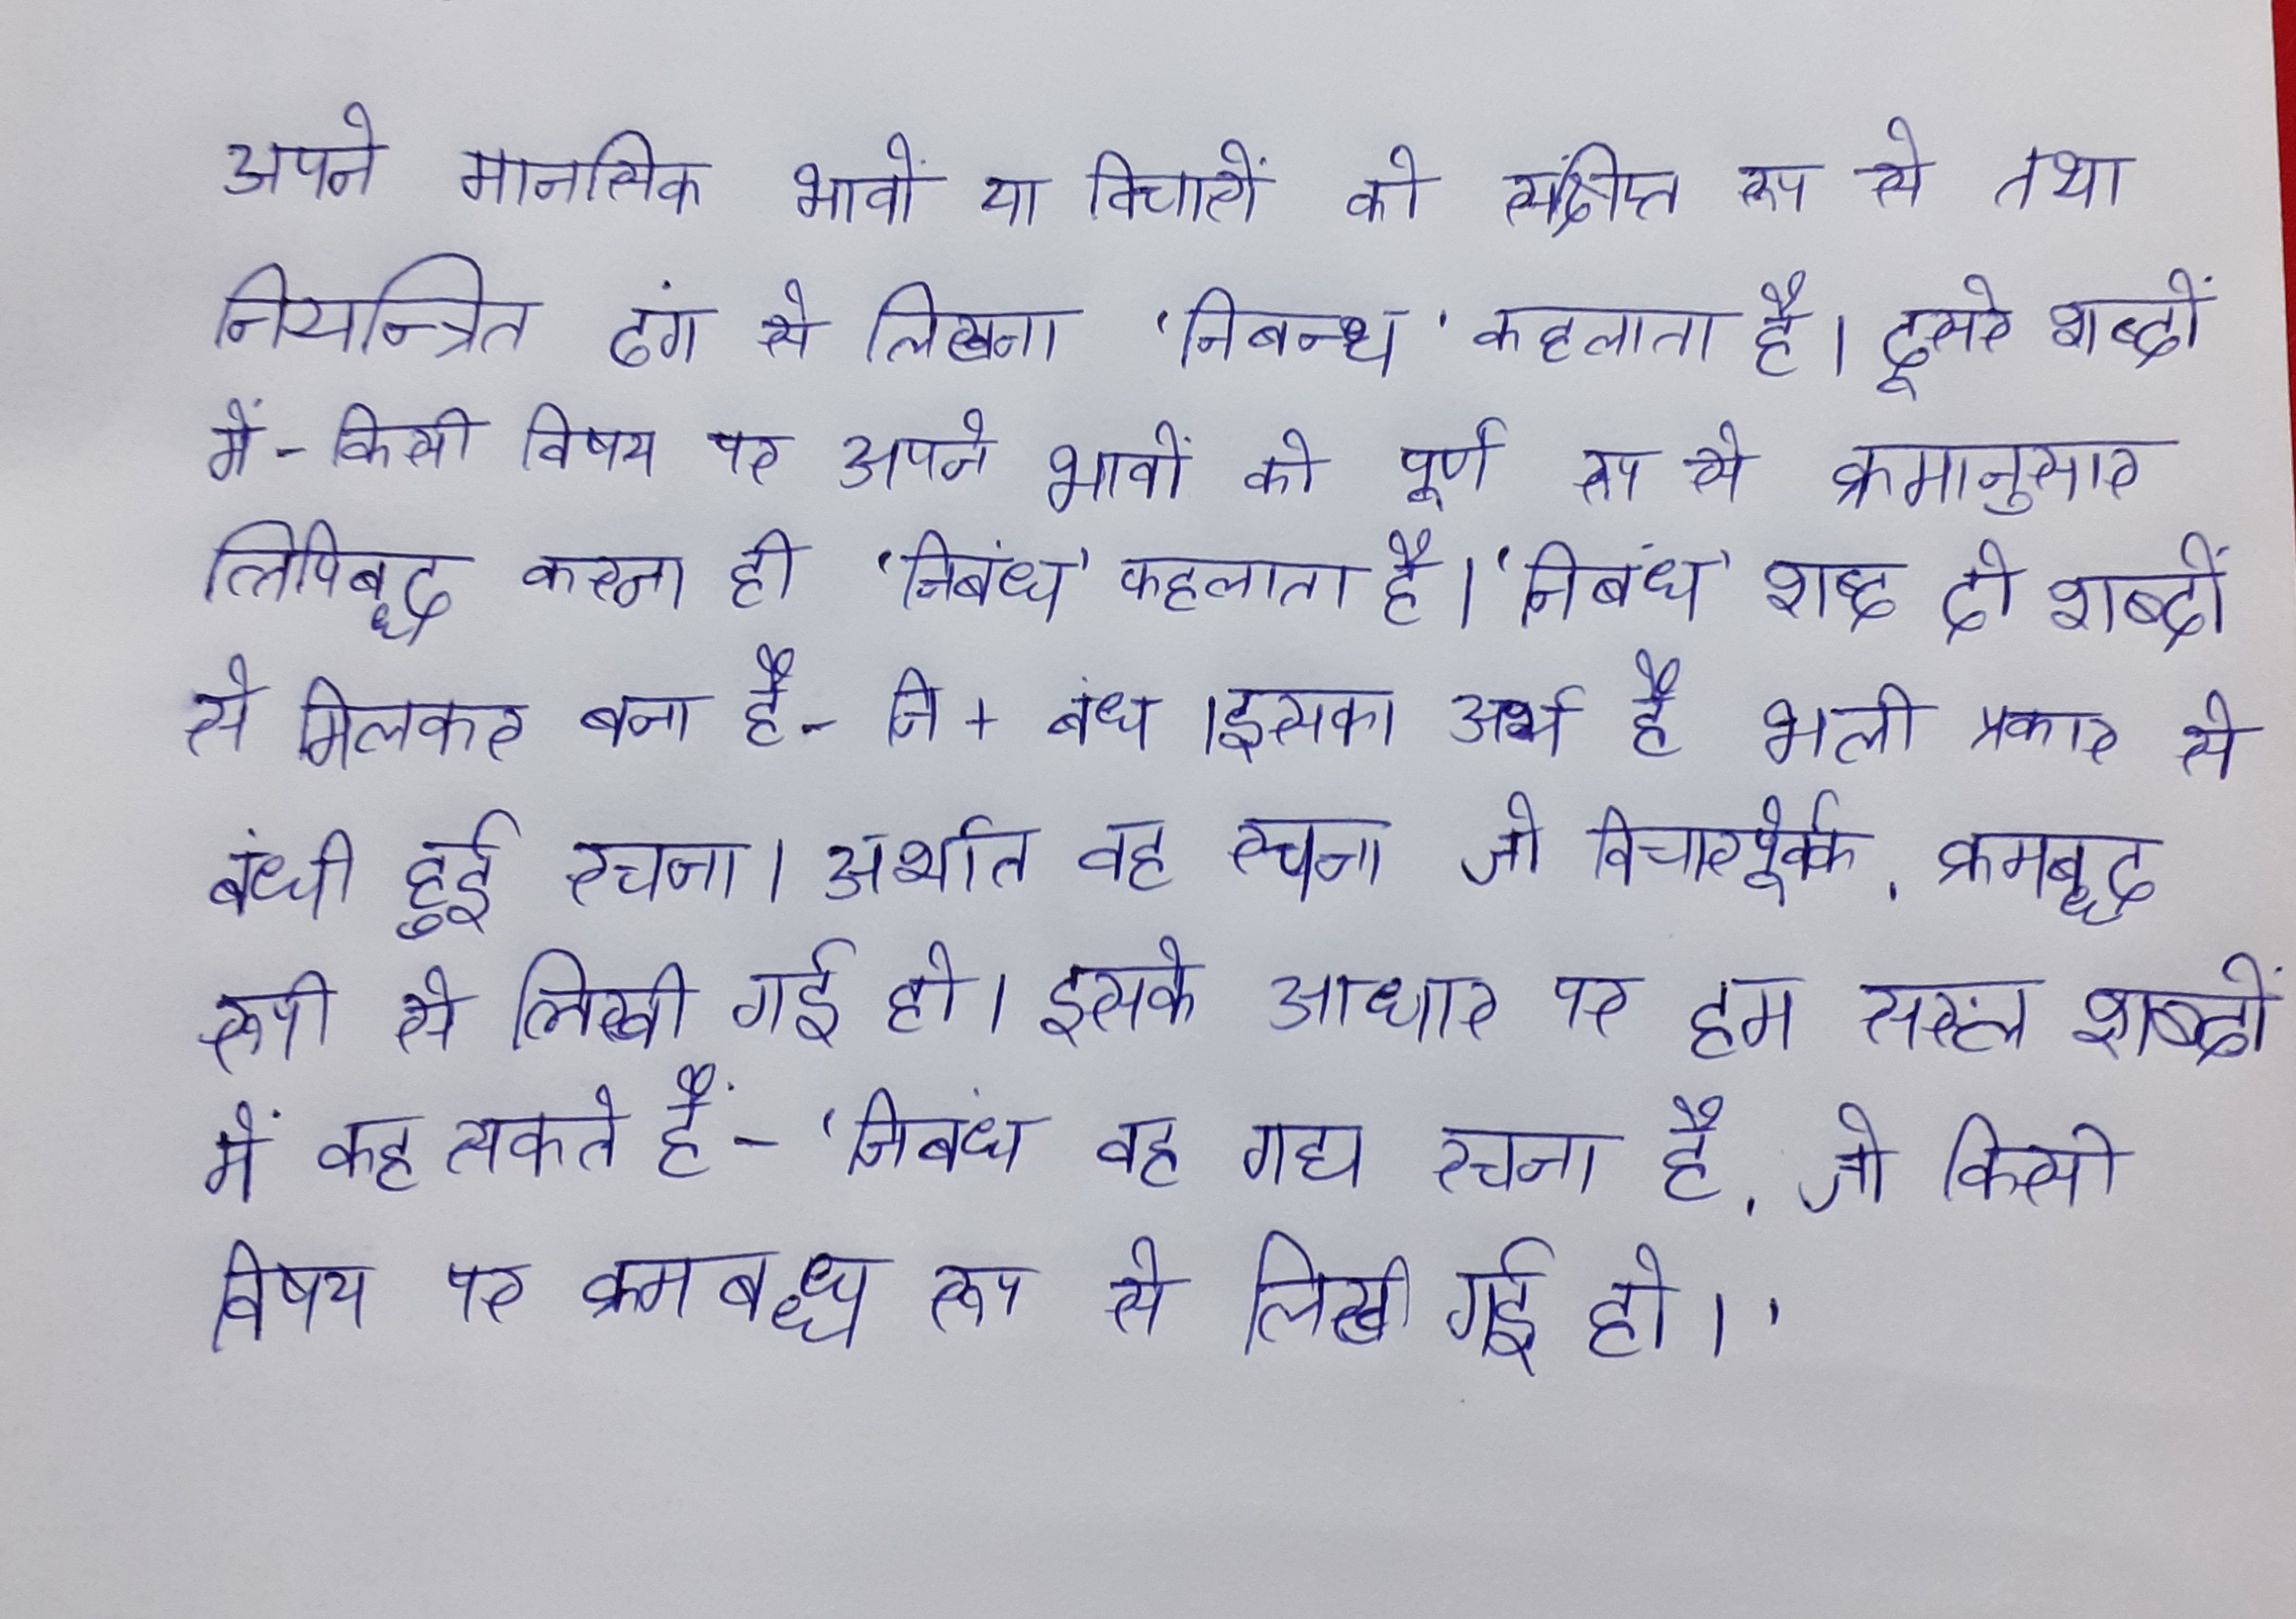 अपने मानसिक भावों या विचारों को संक्षिप्त रूप से तथा
नियन्त्रित ढंग से लिखना 'निबन्ध' कहलाता है। दूसरे शब्दों
में - किसी विषय पर अपने भावों को पूर्ण रूप से क्रमानुसार
लिपिबद्ध करना ही 'निबंध' कहलाता है। 'निबंध' शब्द दो शब्दों
से मिलकर बना है- नि + बंध ।इसका अर्थ है भली प्रकार से
बंधी हुई रचना। अर्थात वह रचना जो विचारपूर्वक, क्रमबद्ध
रूपी से लिखी गई हो। इसके आधार पर हम सरल शब्दों
में कह सकते हैं - 'निबंध वह गद्य रचना है, जो किसी
विषय पर क्रमबद्ध रूप से लिखी गई हो।'